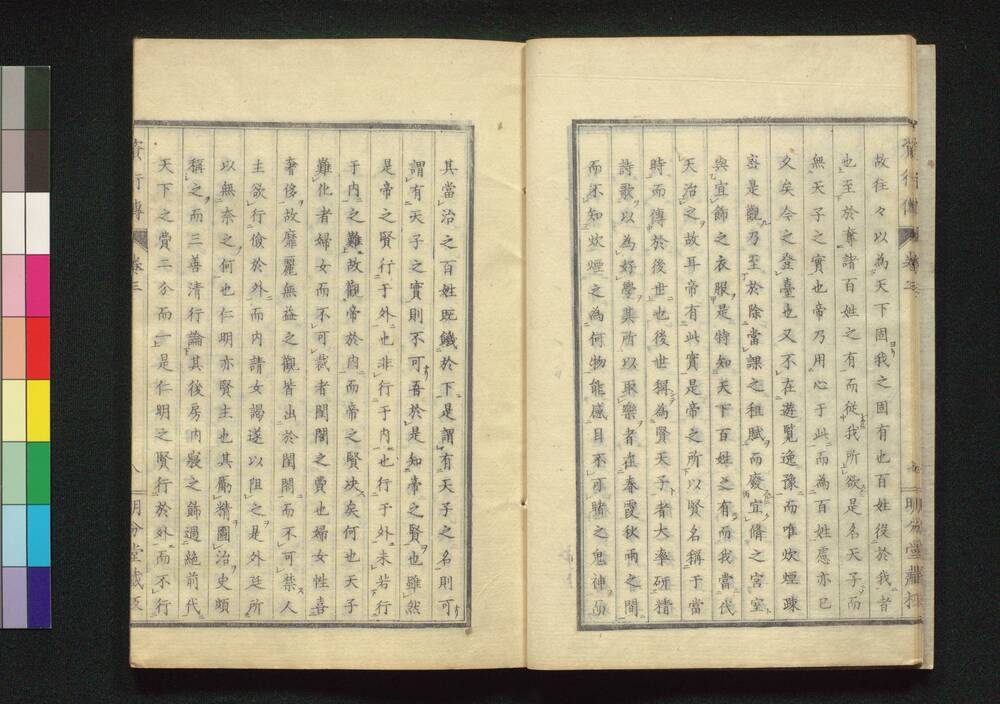 故往々以為天下固我之固有也百姓役於我者
也至於奪諸百姓之有而従我所欲是名天子而
無天子之實也帝乃用心于此而為百姓慮亦已
久矣今之登臺也又不在遊覧逸豫而唯炊煙疎
密是觀乃至於除當課之租賦而廢宜脩之宮室
與宜飾之衣服是特知天下百姓之有而我當代
天治之故耳帝有此實是帝之所以賢名稱于當
時而傳於後世也後世稱為賢天子者大率研精
詩歌以為好學其所以取樂者在春霞秋雨之間
而不知炊煙之為何物能感目不可賭之鬼神
其當治之百姓既饑於下是謂有天子之名則可
謂有天子之實則不可吾於是知帝之賢也雖然
是帝之賢行于外也非行于内也行于外未若行
于内之難故觀帝於内而帝之賢决矣何也天子
難化者婦女而不可裁者閨閤之費也婦女性喜
奢侈故靡麗無益之觀皆出於閨閤而不可禁人
主欲行儉於外而内請女謁遂以阻之是外廷所
以無奈之何也仁明亦賢主也其勵精圖治史頗
稱之而三善清行論其後房内寝之飾過絶前代
天下之費二分而一是仁明之賢行於外而不行
賢行傳
巻三
八
明分堂蔵